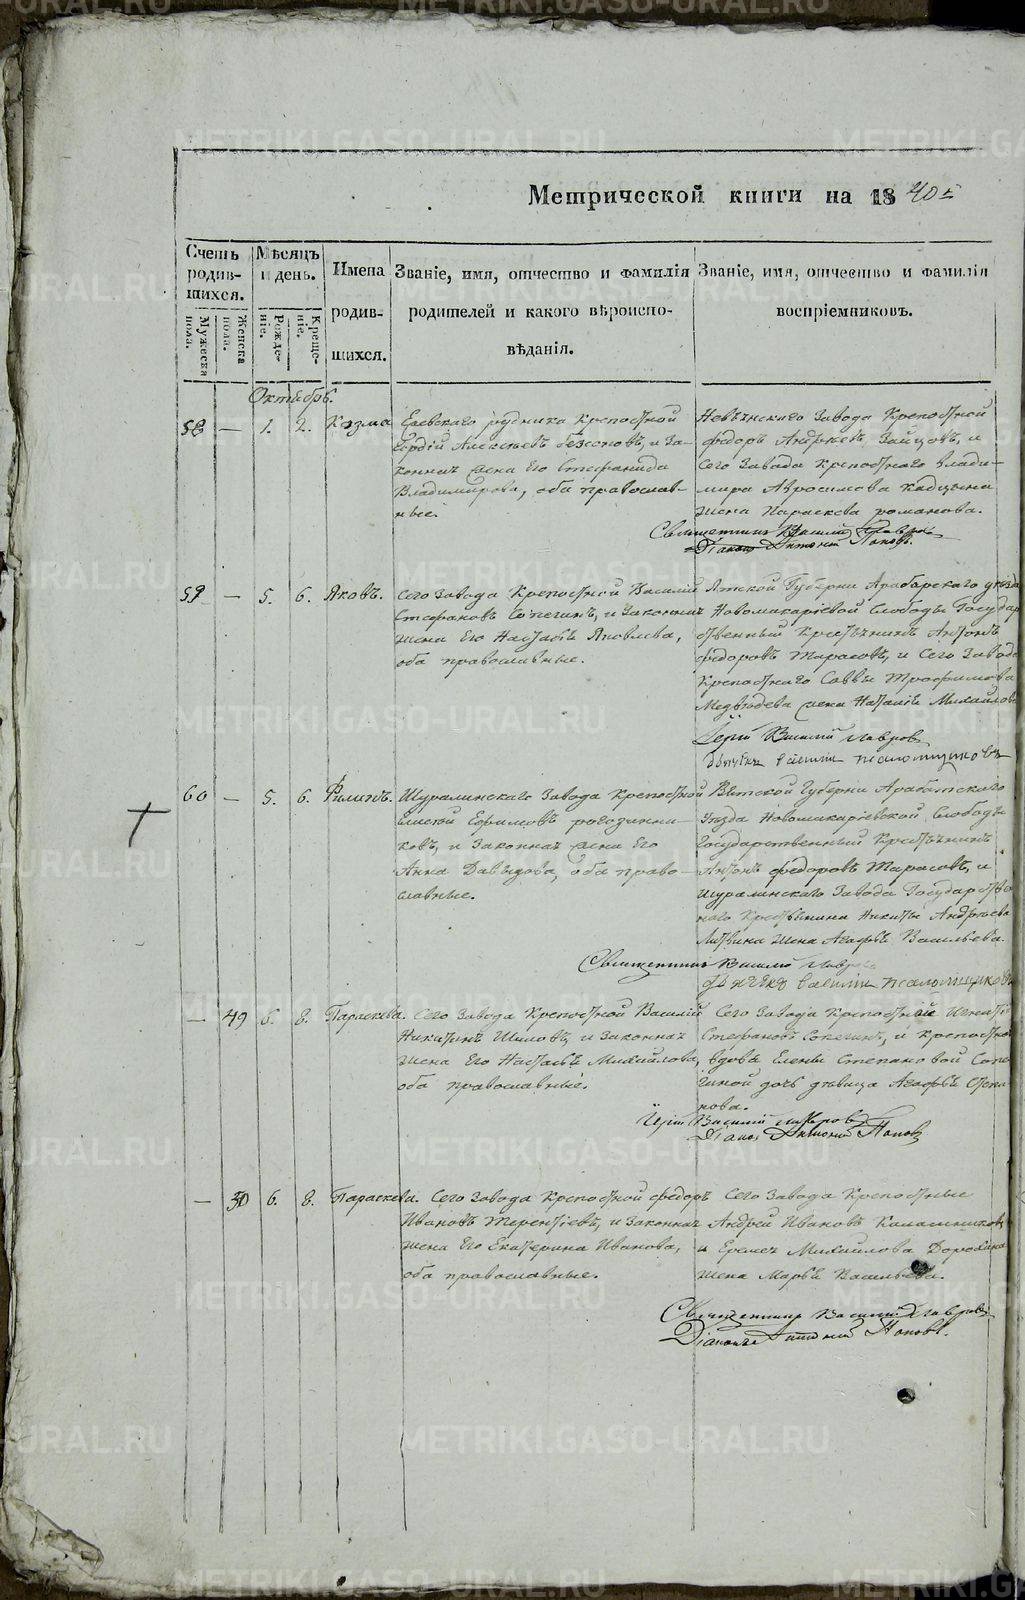 METRIKI.GASO-URAL.RU
Метрической книги на 1840 г.
Счетъ родив-шихся.
Мѣсяцъ и день.
Имена родив-шихся.
Званіе, имя, отчество и фамилія родителей и какого вѣроиспо-вѣданія.
Званіе, имя, отчество и фамилія воспріемниковъ.
Мужеска пола.
Женска пола.
Рожде-ніе.
Креще-ніе.
Октябрь.
58 — 1. 2. Козма
крепостной
Алексѣевъ и за-
конная жена Его Стефанида
Владимирова, оба православ-
ные.
Невьянскаго Завода Крепостной
Федоръ Андреевъ Зайцовъ, и
Сего Завода крепостнаго Влади-
мира
жена Параскева романова.
Священникъ Василий Лавровъ
Діаконъ Антоній Поповъ.
59 — 5. 6. Яковъ.
Сего Завода Крепостной Василий
Стефановъ Сопегинъ, и Законная
жена Его Настасья Яковлева,
оба православные.
Вятской Губерни
Новомакариевой Слободы Государ
ственный Крестьянинъ Антонъ
Федоровъ Тарасовъ, и Сего Завода
Крепостнаго Саввы Трофимова
Медведева жена Наталья Михайлова
Іерей Василий Лавровъ
Василий Псаломщиковъ
60 — 5. 6. Филипъ.
Шуралинскаго Завода Крепостной
Ефимовъ рогозинни-
ковъ, и Законная жена Его
Анна Давыдова, оба право-
славные.
Вятской Губерни
Уезда Новомакариевской Слободы
Государственный Крестьянинъ
Антонъ Федоровъ Тарасовъ, и
Шуралинскаго Завода Государствен
наго Крестьянина Никиты Андреева
жена Агафья Васильева.
Священникъ Василий Лавровъ
Василий Псаломщиковъ
— 49 6. 8. Параскева.
Сего Завода Крепостной Василий
Никитинъ Шиловъ, и Законная
жена Его Настасья Михайлова,
оба православные.
Сего Завода Крепостный Игнатий
Стефановъ Сопегинъ, и крепостной
вдовы Елены Степановой Сопе
гиной дочь девица Агафья Степа
нова.
Іерей Василий Лавровъ
Діаконъ Антоній Поповъ
— 50 6. 8. Параскева.
Сего Завода Крепостной Федоръ
Ивановъ Терентиевъ, и Законная
жена Его Екатерина Иванова,
оба православные.
Сего Завода Крепостные
Андрей Ивановъ Калашниковъ
и Еремея Михайлова Дорохина
жена Марья Васильева.
Священникъ Василий Лавровъ
Діаконъ Антоній Поповъ.